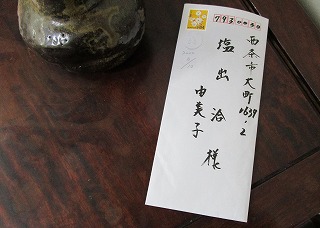 793
西条市大町1639-2
塩出 治 様
由美子